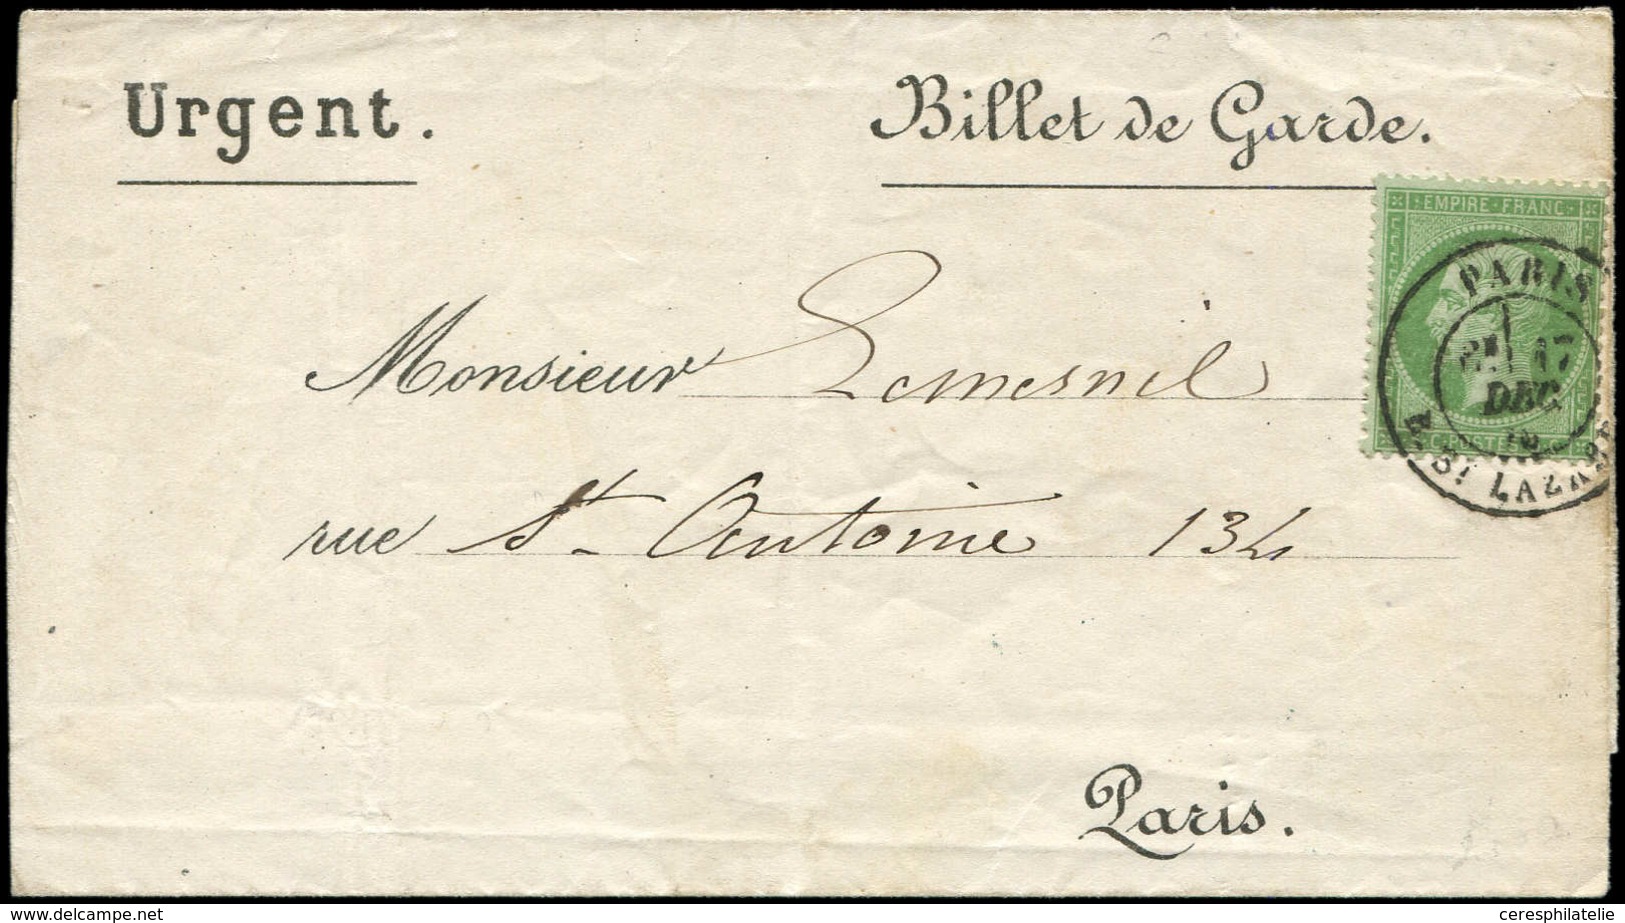 Urgent.
Billet de Garde.
EMPIRE FRANC
PARIS
17
DEC
Monsieur Lemesnil
R. St LAZARE
rue St Antoine 134
Paris.
www.delcampe.net
ceresphilatelie